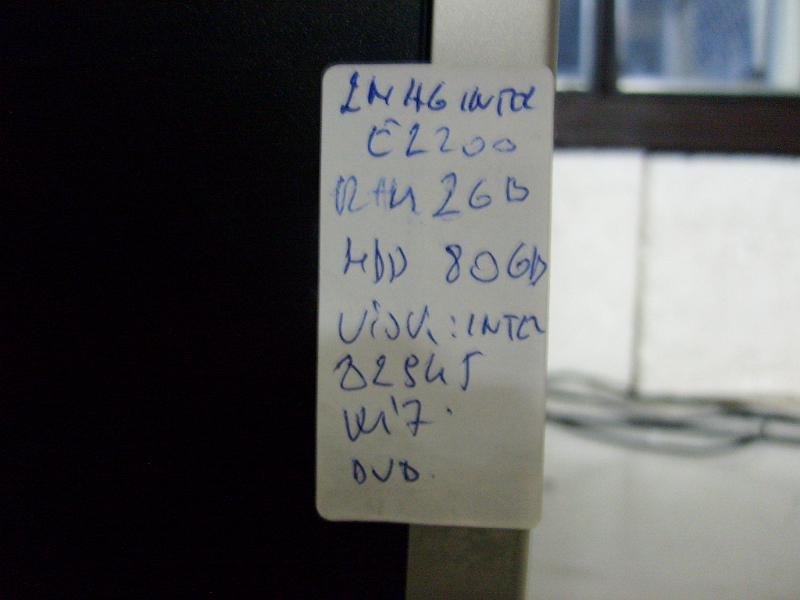 INTEL
E2200
RAM 2GB
HDD 80GB
VIDEO: INTEL
82945
Wi7.
DVD.